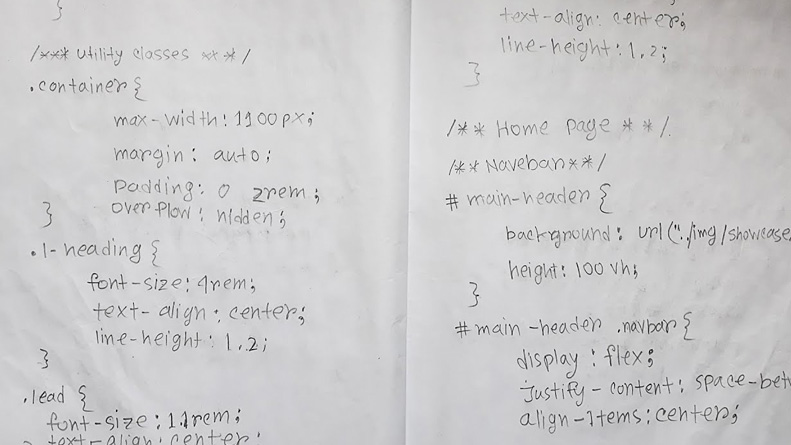 }
/*** Utility classes ***/
.container {
max-width: 1100px;
margin: auto;
padding: 0 2rem;
overflow: hidden;
}
.l-heading {
font-size: 4rem;
text-align: center;
line-height: 1.2;
}
.lead {
font-size: 1.1rem;
text-align: center;
text-align: center;
line-height: 1.2;
}
/** Home page **/
/** Navebar **/
# main-header {
background: url("./img/showcase
height: 100 vh;
}
# main-header .navbar {
display: flex;
justify-content: space-betw
align-items: center;